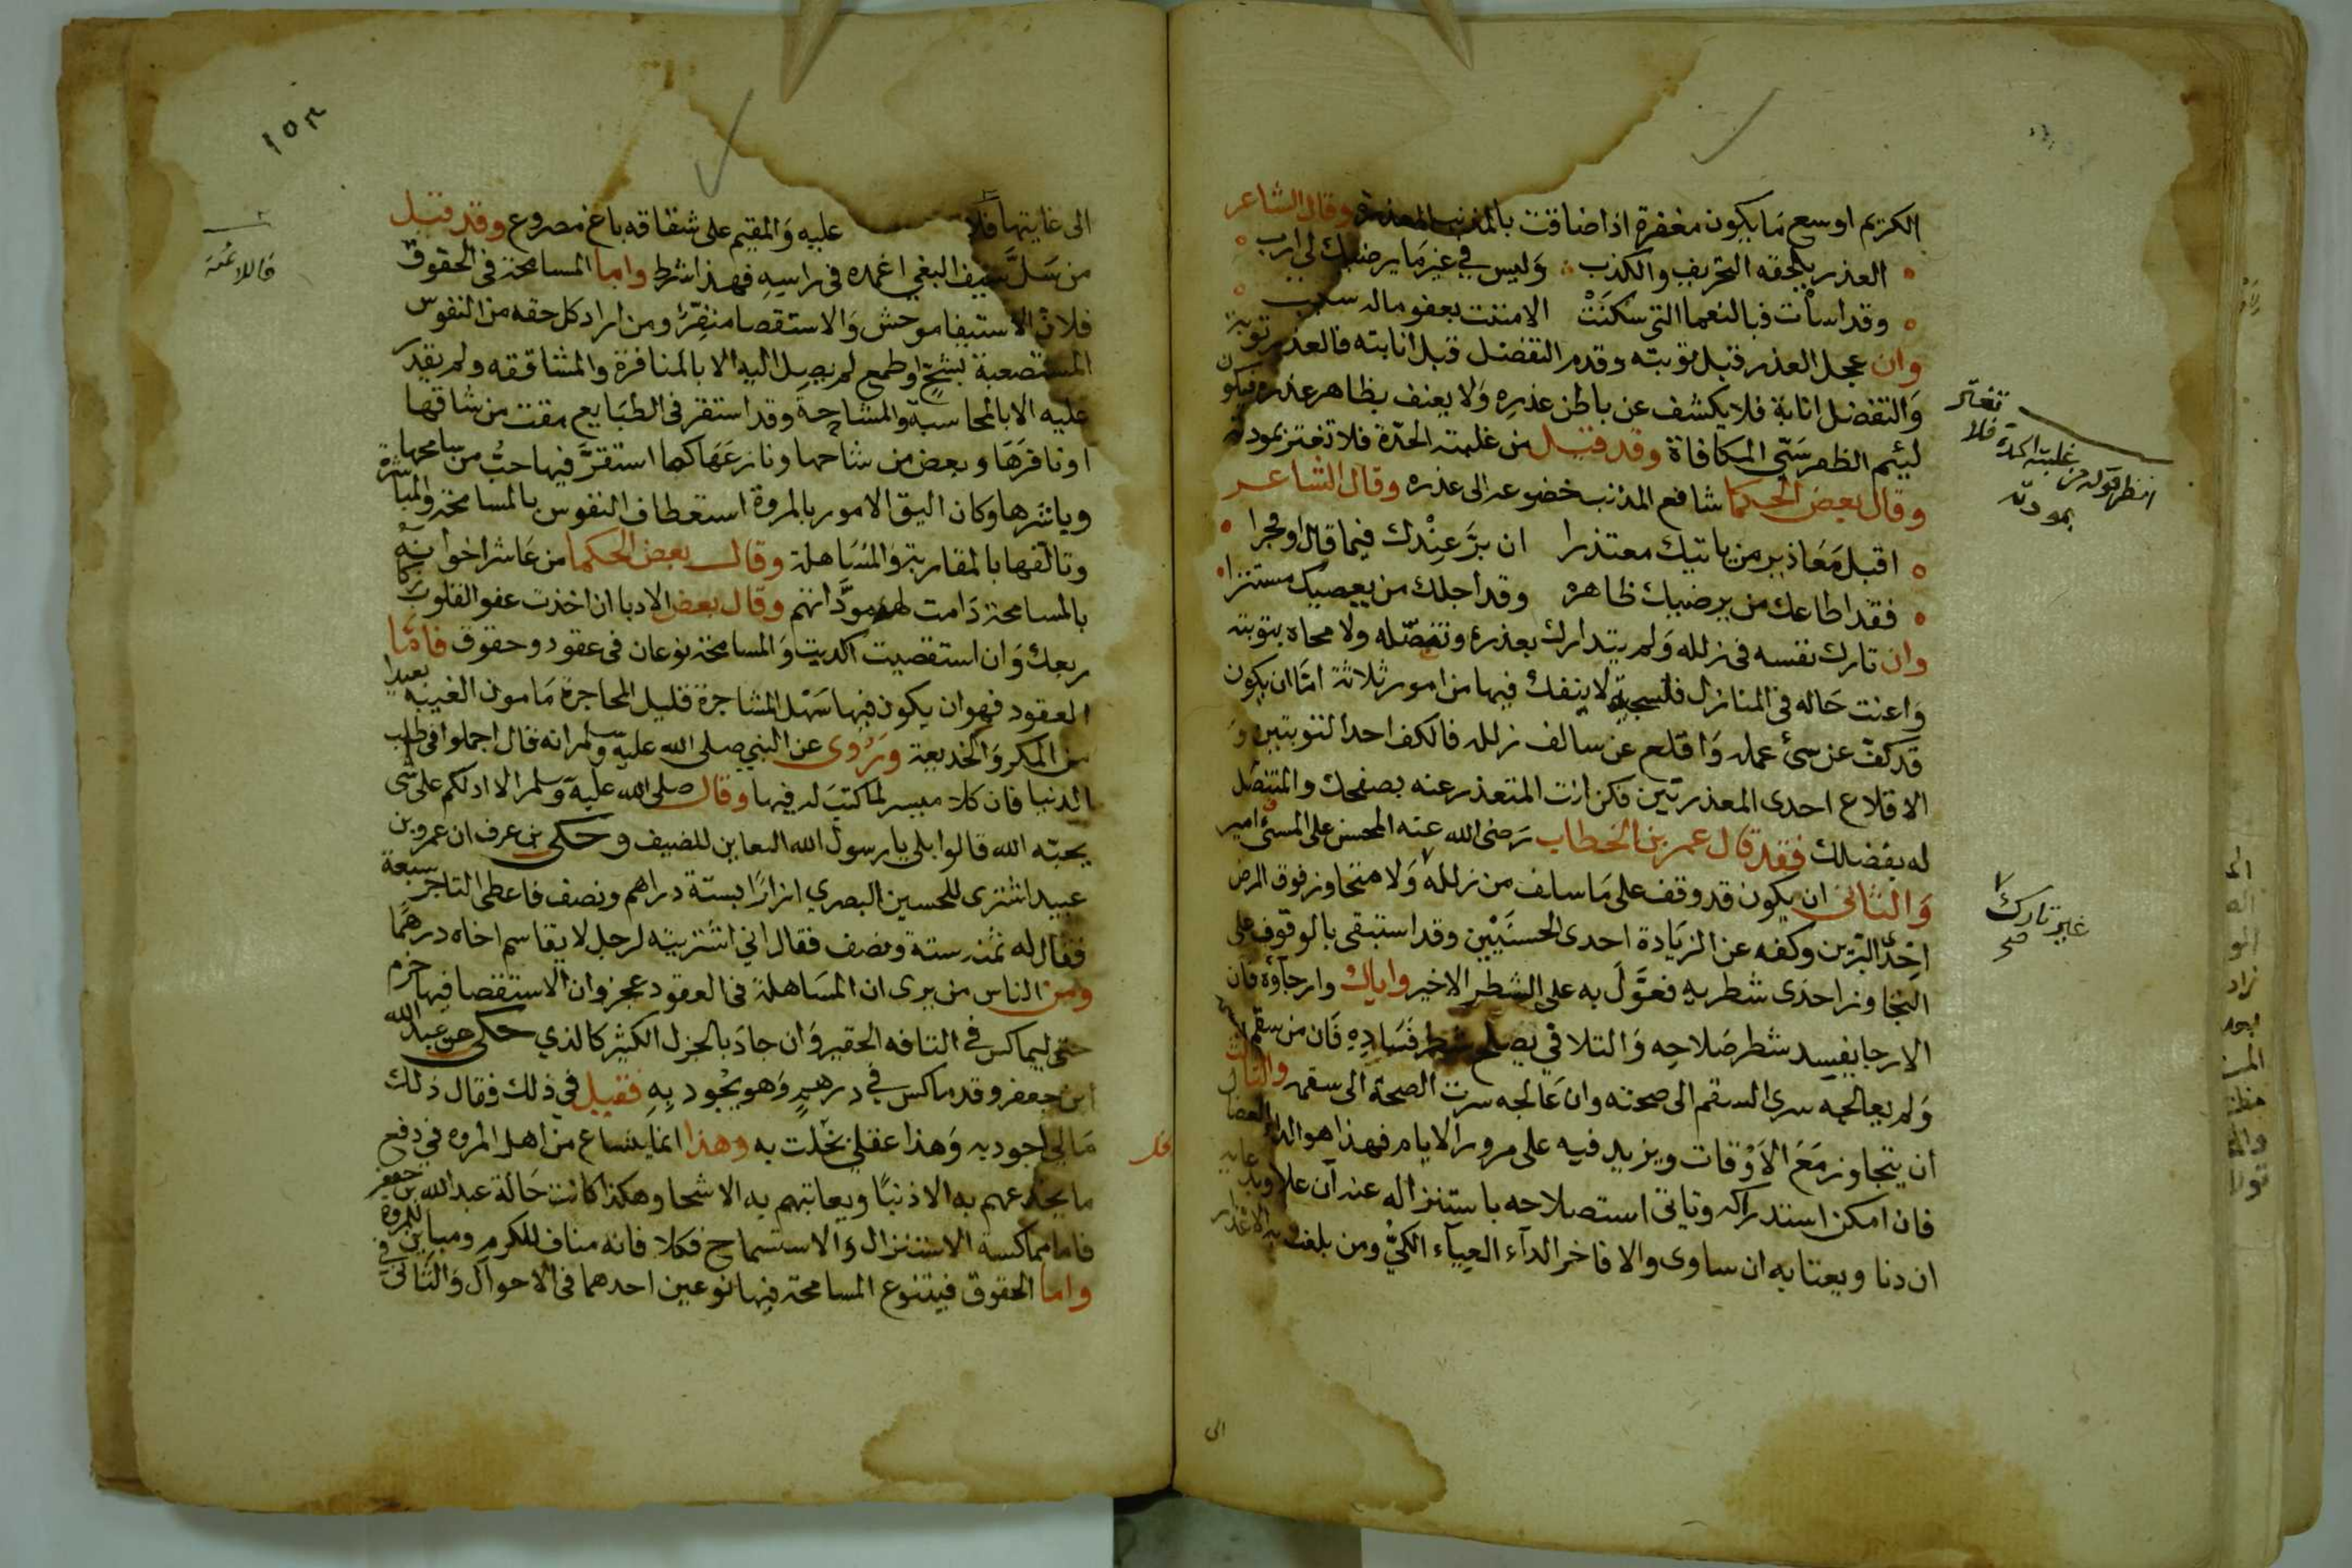 الكريم اوسع ما يكون مغفرة اذا ضاقت بالمذنب المعذرة وقال الشاعر
العذر يلحقه التحريف والكذب وليس في غير ما يرضيك لي ارب
وقد اسأت فبالنعما التي سكنت الا مننت بعفو ماله سبب
وان عجل العذر قبل توبته وقدم التنصل قبل انابته فالعذر توبة
والتنصل انابة فلا يكشف عن باطن عذره ولا يعنف بظاهر عذره فيكون
لئيم الظفر سيّئ المكافاة وقد قيل من غلبته الحدّة فلا تغتر بمودته
وقال بعض الحكما شافع المذنب خضوعه الى عذره وقال الشاعر
اقبل معاذير من ياتيك معتذرا ان برّ عندك فيما قال او فجرا
فقد اطاعك من يرضيك ظاهره وقد اجلك من يعصيك مستترا
وان تارك نفسه في زلله ولم يتدارك بعذره وتنصّله ولا محاه بتوبته
واعنت حاله في المنازل لا ينفك فيها من امور ثلاثة امّا ان يكون
قد كفّ عن سئ عمله واقلع عن سالف زلله فالكف احد التوبتين و
الاقلاع احدى المعذرتين فكن انت المتعذر عنه بصفحك والمتنصّل
له بفضلك فقد قال عمر بن الخطاب رضى الله عنه المحسن على المسئ امير
والثاني ان يكون قد وقف على ما سلف من زلله ولا متجاوز فوق المرض
احد البرّين وكفه عن الزيادة احدى الحسنيين وقد استبقى بالوقوف على
التجاوز احدى شطريه فعوّل به على الشطر الاخير واياك وارجآؤه فان
الارجا يفسد شطر صلاحه والتلافي يصلح شطر فساده فان من سقم
ولم يعالجه سرى السقم الى صحته وان عالجه سرت الصحة الى سقمه والثالث
ان يتجاوز مع الاوقات ويزيد فيه على مرور الايام فهذا هو الداء العضال
فان امكن استدراكه وتاتى استصلاحه باستنزاله عنه ان علا
ان دنا وبعتابه ان ساوى والا فاخر الدآء العيآء الكيّ ومن بلغت به الاعذار
تغتر
انظر قوله من غلبته الحدة فلا
بمودته
غير تارك
صح
الى
١٥٣
الى غايتها فلا عليه والمقيم على شقاقه باغ مصروع وقد قيل
من سلّ سيف البغي اغمده في راسه فهذا شرط واما المسامحة في الحقوق
فلان الاستيفا موحش والاستقصا منفّر ومن اراد كل حقه من النفوس
المستصعبة بشحّ او طمع لم يصل اليه الا بالمنافرة والمشاققه ولم يقدر
عليه الا بالمحاسبة والمشاحة وقد استقر في الطبايع مقت من شاقها
او نافرها وبعض من شاحها ونازعها كما استقرّ فيها حبّ من سامحها
وياشرها وكان اليق الامور بالمروة استعطاف النفوس بالمسامحة والمياشرة
وتالفها بالمقاربة والمساهلة وقال بعض الحكما من عاشر اخوانه
بالمسامحة دامت له مودّاتهم وقال بعض الادبا ان اخذت عفو القلوب زكا
ريعك وان استقصيت اكديت والمسامحة نوعان في عقود وحقوق فامّا
العقود فهو ان يكون فيها سهل المشاجرة قليل المحاجرة مامون الغيبه بعيدا
من المكر والخديعة وروى عن النبي صلى الله عليه وسلم انه قال اجملوا في طلب
الدنيا فان كلا ميسر لما كتب له فيها وقال صلى الله عليه وسلم الا ادلكم على شى
يحبّه الله قالوا بلى يا رسول الله التغابن للضيف وحكى بن عرف ان عمرو بن
عبيد اشترى للحسين البصري ازارا بستة دراهم ونصف فاعطى التاجر سبعة
فقال له ثمنه ستة ونصف فقال اني اشتريته لرجل لا يقاسم اخاه درهما
ومن الناس من يرى ان المساهلة في العقود عجز وان الاستقصا فيها حزم
حتى ليماكس في التافه الحقير وان جاد بالجزل الكثير كالذي حكى عن عبد الله
ابن جعفر وقد ماكس في درهم وهو يجود به فقيل في ذلك فقال ذلك
مالي اجود به وهذا عقلي بخلت به وهذا انما ينساع من اهل المروه في دفع
ما يخدعهم به الاذنيا ويعاتبهم به الاشحا وهكذا كانت حالة عبد الله بن جعفر
فاما مماكسة الاستنزال والاستسماح فكلا فانه مناف للكرم ومباين للمروة
واما الحقوق فيتنوع المسامحة فيها نوعين احدهما في الاحوال والثاني في
فاللاعنة